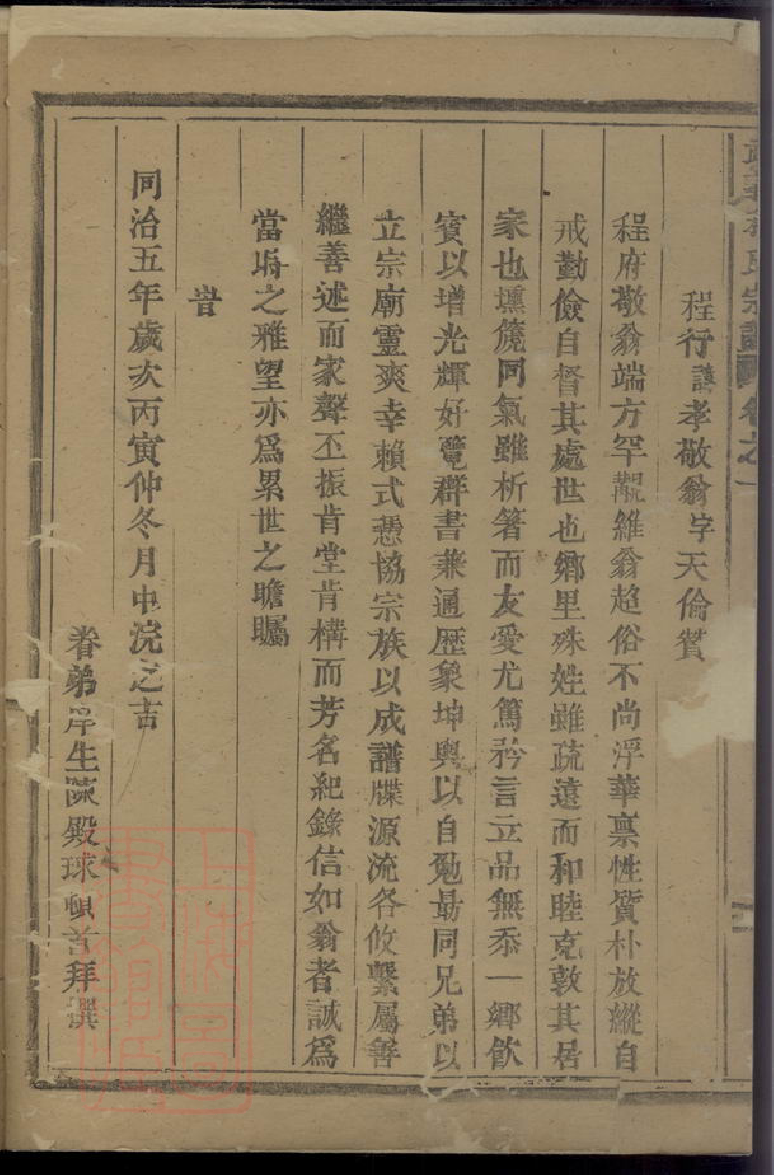 氏宗譜 卷之一
程行諱孝敬翁字天倫贊
程府敬翁端方罕覯維翁超俗不尚浮華禀性質朴放縱自
戒勤儉自督其處世也鄉里殊姓雖疏遠而和睦克敦其居
家也壎篪同氣雖析箸而友愛尤篤矜言立品無忝一鄉飲
賓以增光輝好覽群書兼通歷象坤輿以自勉最同兄弟以
立宗廟靈爽幸賴式憑協宗族以成譜牒源流各攸繫屬善
繼善述而家聲丕振肯堂肯構而芳名紀錄信如翁者誠爲
當時之雅望亦爲累世之瞻矚
旹
同治五年歲次丙寅仲冬月中浣之吉
眷弟庠生陳殿球頓首拜撰
上海圖書館藏